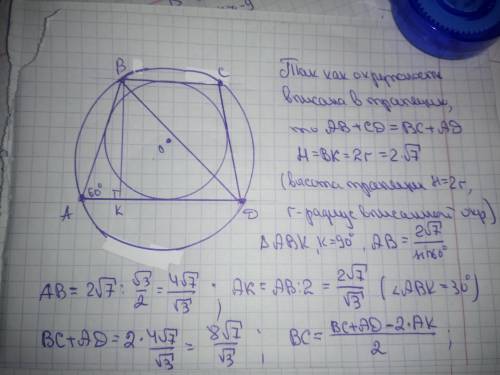 B
C
O
60°
A
K
D
Так как окружность
вписана в трапецию,
то AB+CD=BC+AD
H=BK=2r=2√7
(высота трапеции H=2r,
r-радиус вписанной окр)
△ABK, K=90°, AB=2√7/sin60°
AB=2√7:√3/2=4√7/√3; AK=AB:2=2√7/√3 (∠ABK=30°)
BC+AD=2·4√7/√3=8√7/√3; BC=BC+AD-2·AK/2;